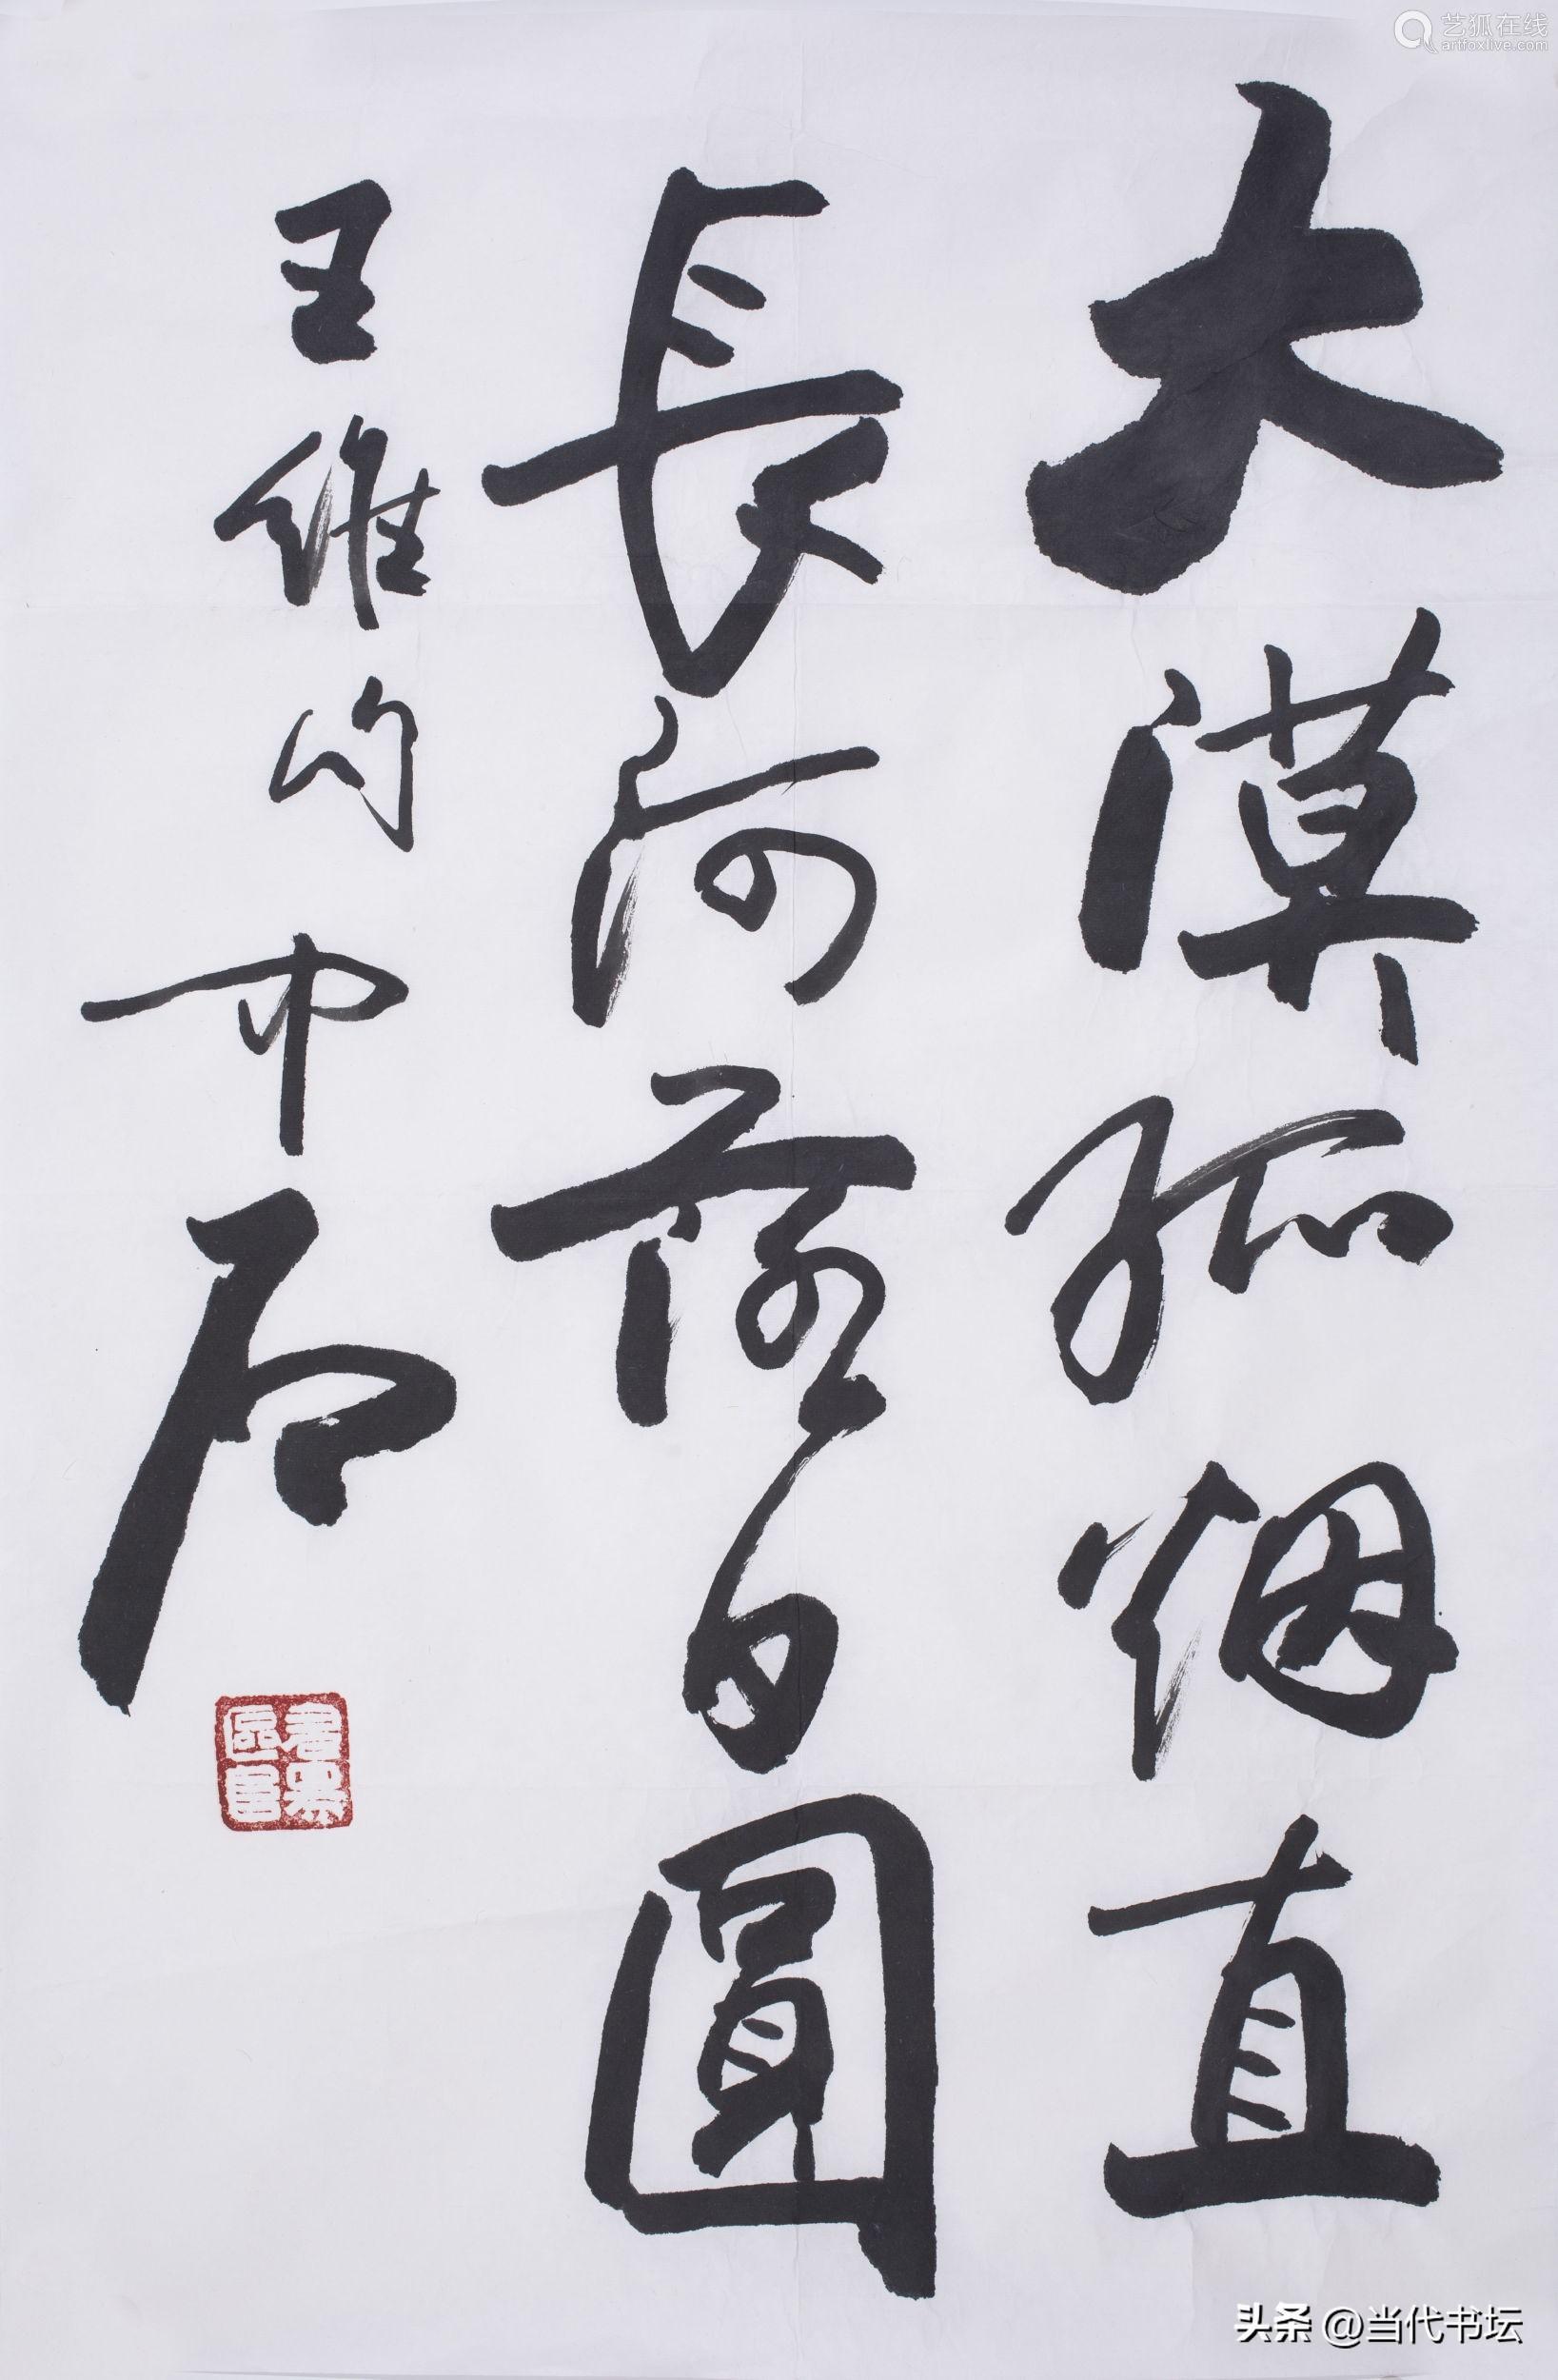 大漠孤烟直
長河落日圓
王維句 中石
艺狐在线
artfoxlive.com
头条 @当代书坛